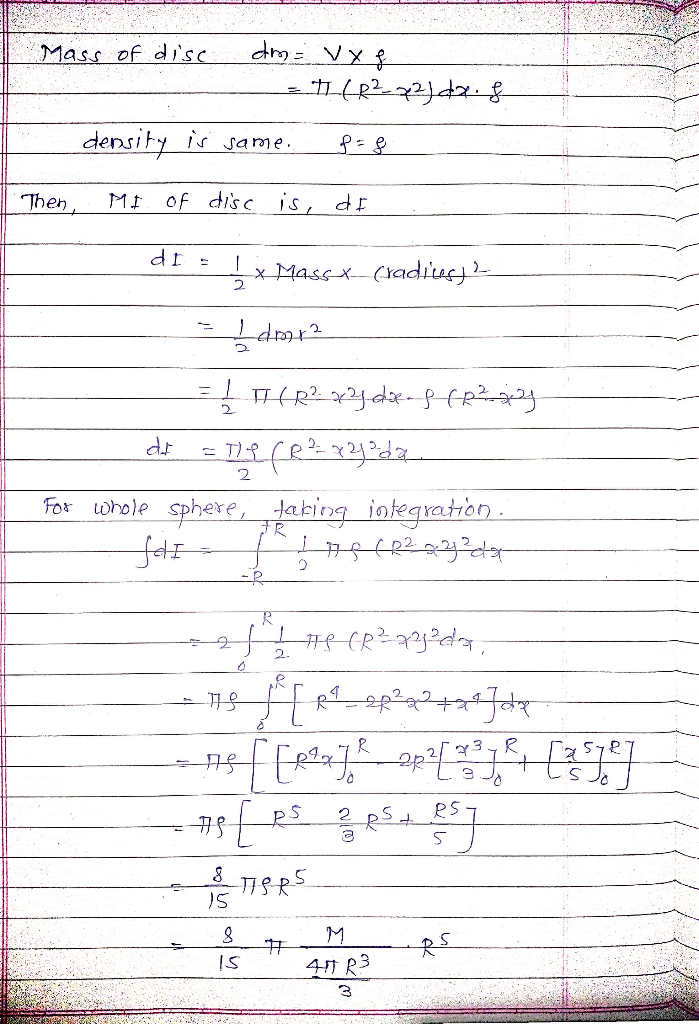 Mass of disc dm = V × ρ
= π (R² - x²) dx. ρ
density is same. ρ = ρ
Then, MI of disc is, dI
dI = 1/2 × Mass × (radius)²
= 1/2 dm r²
= 1/2 π (R² - x²) dx. ρ (R² - x²)
dI = πρ/2 (R² - x²)² dx
For whole sphere, taking integration.
∫dI = ∫_{-R}^{+R} 1/2 πρ (R² - x²)² dx
= 2 ∫_0^R 1/2 πρ (R² - x²)² dx,
= πρ ∫_0^R [R⁴ - 2R²x² + x⁴] dx
= πρ [[R⁴x]_0^R - 2R² [x³/3]_0^R + [x⁵/5]_0^R]
= πρ [R⁵ - 2/3 R⁵ + R⁵/5]
= 8/15 πρR⁵
= 8/15 π M/(4πR³/3) . R⁵